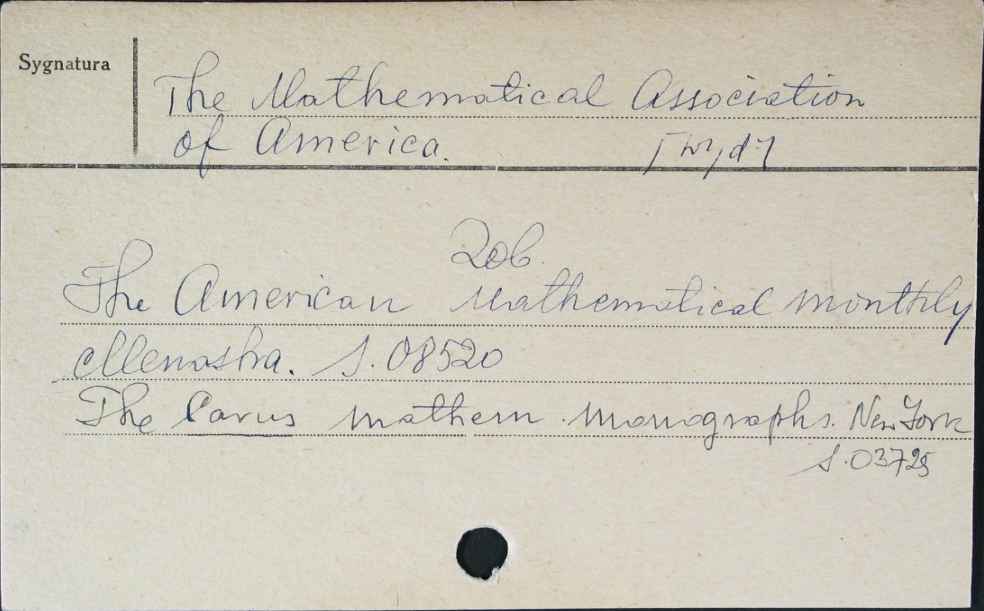 Sygnatura
The Mathematical Association
of America.
Zob.
The American Mathematical monthly
Menasha. S. 08520
The Carus mathem. monographs. New York
S. 03725